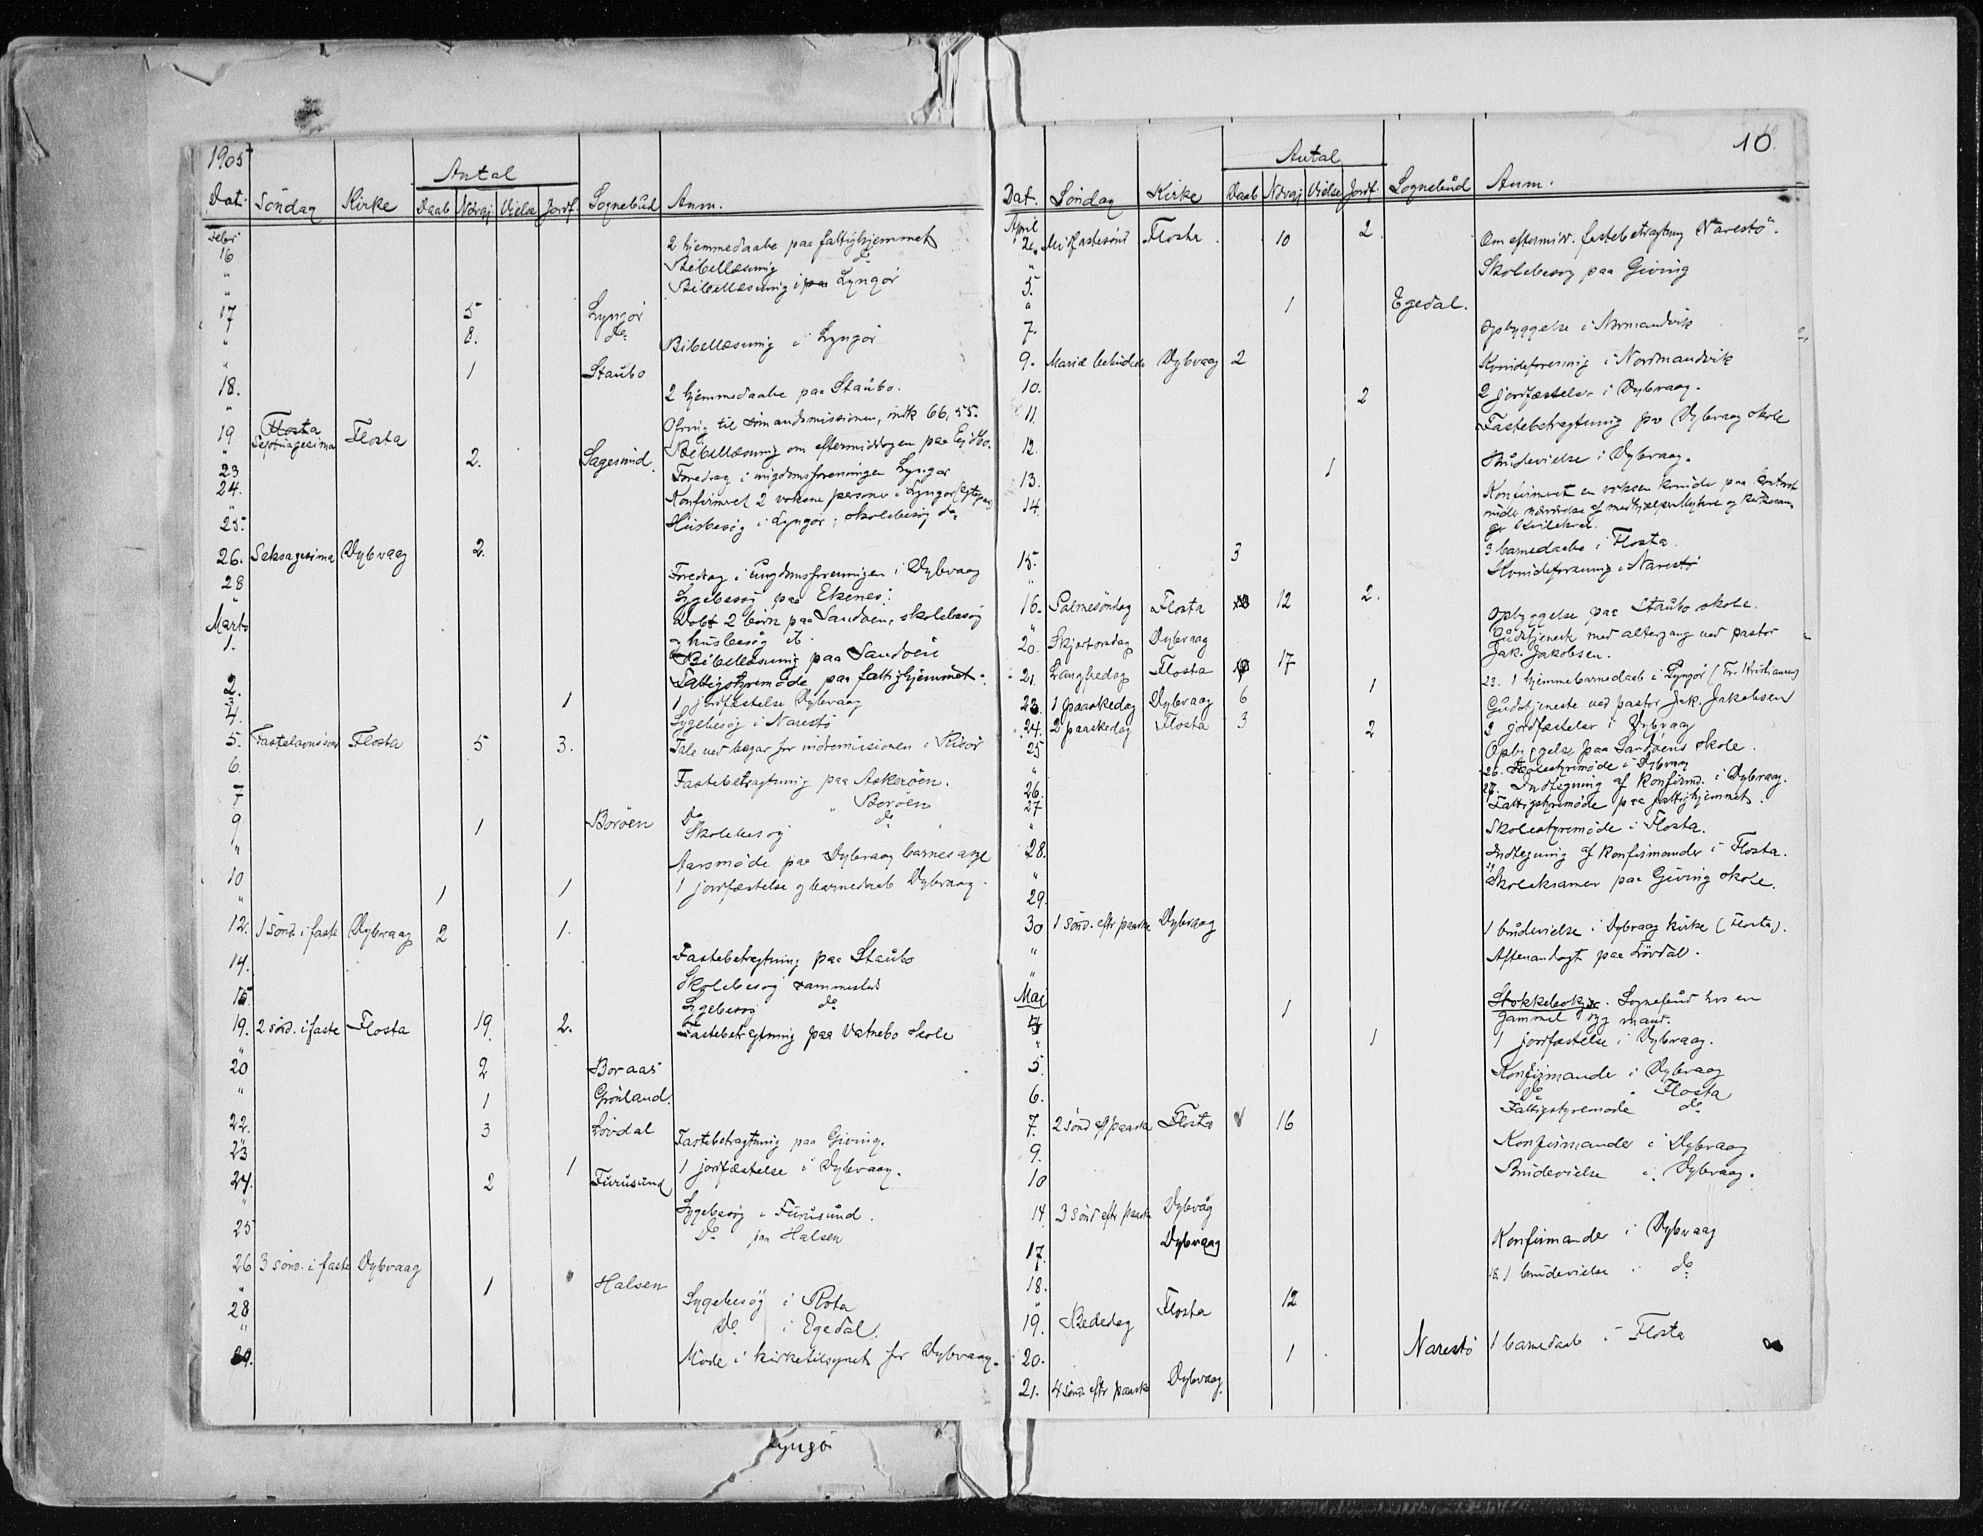 1905
Antal
Dat. Söndag Kirke Daab Ndvgj. Vielse Jordf. Sognebud Anm.
Febr
16 2 hjemmedaabe paa fattighjemmet
" Bibellæsning do
" Bibellæsning i Lyngör
17 5 Lyngör
" 8. do
" Bibellæsning i Lyngör
" 1 Staubo
18. 2 hjemmedaabe paa Staubo.
" Ofring til sömandsmissionen, indk 66,55.
19 Septuagesima Flosta Bibellæsning om eftermiddagen paa
" 2. Sagesund
23 Foredrag i ungdomsforeningen Lyngör
24. Konfirmeret 2 voksne personer i Lyngör
25. Husbesög i Lyngör; skolebesög do
26. Seksagesima Dybvaag 2.
28 Foredrag i ungdomsforeningen i Dybvaag
" Sygebesög paa Ekenes.
Marts
1. Döbt 2 börn paa Sandöen, skolebesög
og husbesög
Bibellæsning paa Sandöen
2. Fattigstyremöde paa fattighjemmet.
3 1 1 jordfæstelse Dybvaag
4. Sygebesög i Narestö
5. Fastelavnssönd Flosta 5 3. Tale ved bazar for indremissionen i Risör
6. Fastebetragtning paa Askeröen.
7 Do " Boröen
9 1 Boröen Skolebesög do
" Aarsmöde paa Dybvaag barneasyl
10 1 1 1 jordfæstelse og barnedaab Dybvaag.
12. 1 sönd. i faste Dybvaag 2 1.
14. Fastebetragtning paa Staubo
15 Skolebesög sammested
Sygebesög do
19. 2 sönd. i faste Flosta 19. 2. Fastebetragtning paa Vatnebo skole
20 2 Boraas
" 1 Grönland.
22. 3 Lövdal
23 Fastebetragtning paa Giving.
24. 1 1 jordfæstelse i Dybvaag.
" 2 Furusund
25 Sygebesög i Furusund.
Do paa Halsen
26 3 sönd. i faste Dybvaag
" 1 Halsen
28 Sygebesög i Rota
" Do i Egedal.
29. Möde i kirketilsynet for Dybvaag.
Lyngö
10
Antal
Dat. Söndag Kirke Daab Ndvgj Vielse Jordf. Sognebud Anm.
April
2. Midfastesönd Flosta 10 2 Om eftermid. fastebetragtning Narestö.
" Skolebesög paa Giving
5.
" 1 Egedal.
7. Opbyggelse i Normandvik
9. Mariæ bebudelse Dybvaag 2 Kvindeforening i Normandvik
10. 2 2 jordfæstelser i Dybvaag.
11. Fastebetragtning paa Dybvaag skole
12. 1 Brudevielse i Dybvaag.
13. Konfirmeret en voksen kvinde paa
14. under nærværelse af medhjælper og kirkesan-
ger
15. 3 3 barnedaabe i Flosta.
" Kvindeforening i Narestö
16. Palmesöndag Flosta 12 2.
" Opbyggelse paa Staubo skole.
20. Skjærtorsdag Dybvaag Gudstjeneste med altergang ved pastor
Jak. Jakobsen.
21. Langfredag Flosta 17 1 23. 1 hjemmebarnedaab i Lyngör
23. 1 paaskedag Dybvaag 6 Gudstjeneste ved pastor Jak. Jakobsen
24. 2 paaskedag Flosta 3 2 2 jordfæstelser i Dybvaag
25 Opbyggelse paa Sandöens skole.
" 26. Skolestyremöde i Dybvaag
26. 26. Indtegning af konfirmd. i Dybvaag.
27 Fattigstyremöde paa fattighjemmet.
" Skolestyremöde i Flosta.
28. Indtegning af konfirmander i Flosta.
" Skoleksamen paa Giving skole.
29.
30 1 sönd. eftr paaske Dybvaag 1 brudevielse i Dybvaag kirke (Flosta).
" Aftenandagt paa Lövdal.
"
Mai
4 1 Sognebud hos en
gammel syg mand.
" 1 1 jordfæstelse i Dybvaag.
5. Konfirmander i Dybvaag
6. do " Flosta
Fattigstyremöde do
7. 2 sönd eft paaske Flosta 16
9. Konfirmander i Dybvaag
10 Brudevielse i Dybvaag.
14 3 sönd eftr paaske Dybvåg
17. Dybvaag Konfirmander i Dybvaag
18. 18. 1 brudevielse " do
"
19. Bededag Flosta 12
20. 1 Narestö 1 barnedaab i Flosta
21. 4 sönd. eftr paaske Dybvaag.